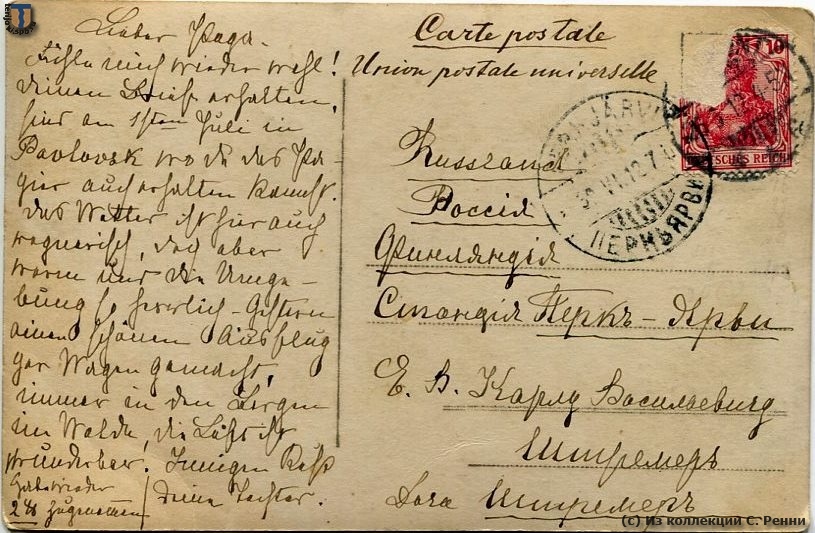 Lieber Papa.
Fühle mich wieder wohl!
deinen Brief erhalten,
sind am 1sten Juli in
Pavlovsk wo du das Pa-
pier auch erhalten kannst.
das Wetter ist hier auch
regnerisch, doch aber
warm und die Umge-
bung so herrlich - Gestern
einen schönen Ausflug
per Wagen gemacht,
immer in den Bergen
im Walde, die Luft ist
wunderbar. Innigen Kuss
deine Tochter.
Habe wieder
2 zugenommen
Carte postale
Union postale universelle
Russland
Россія
Финляндія
Станція Перкъ-Ярви
Е. В. Карлу Васильевичу
Штремеръ
Дача Штремеръ
10
DEUTSCHES REICH
PERKJÄRVI
30.VI.12.7
ПЕРКЪЯРВИ
(с) Из коллекции С. Ренни